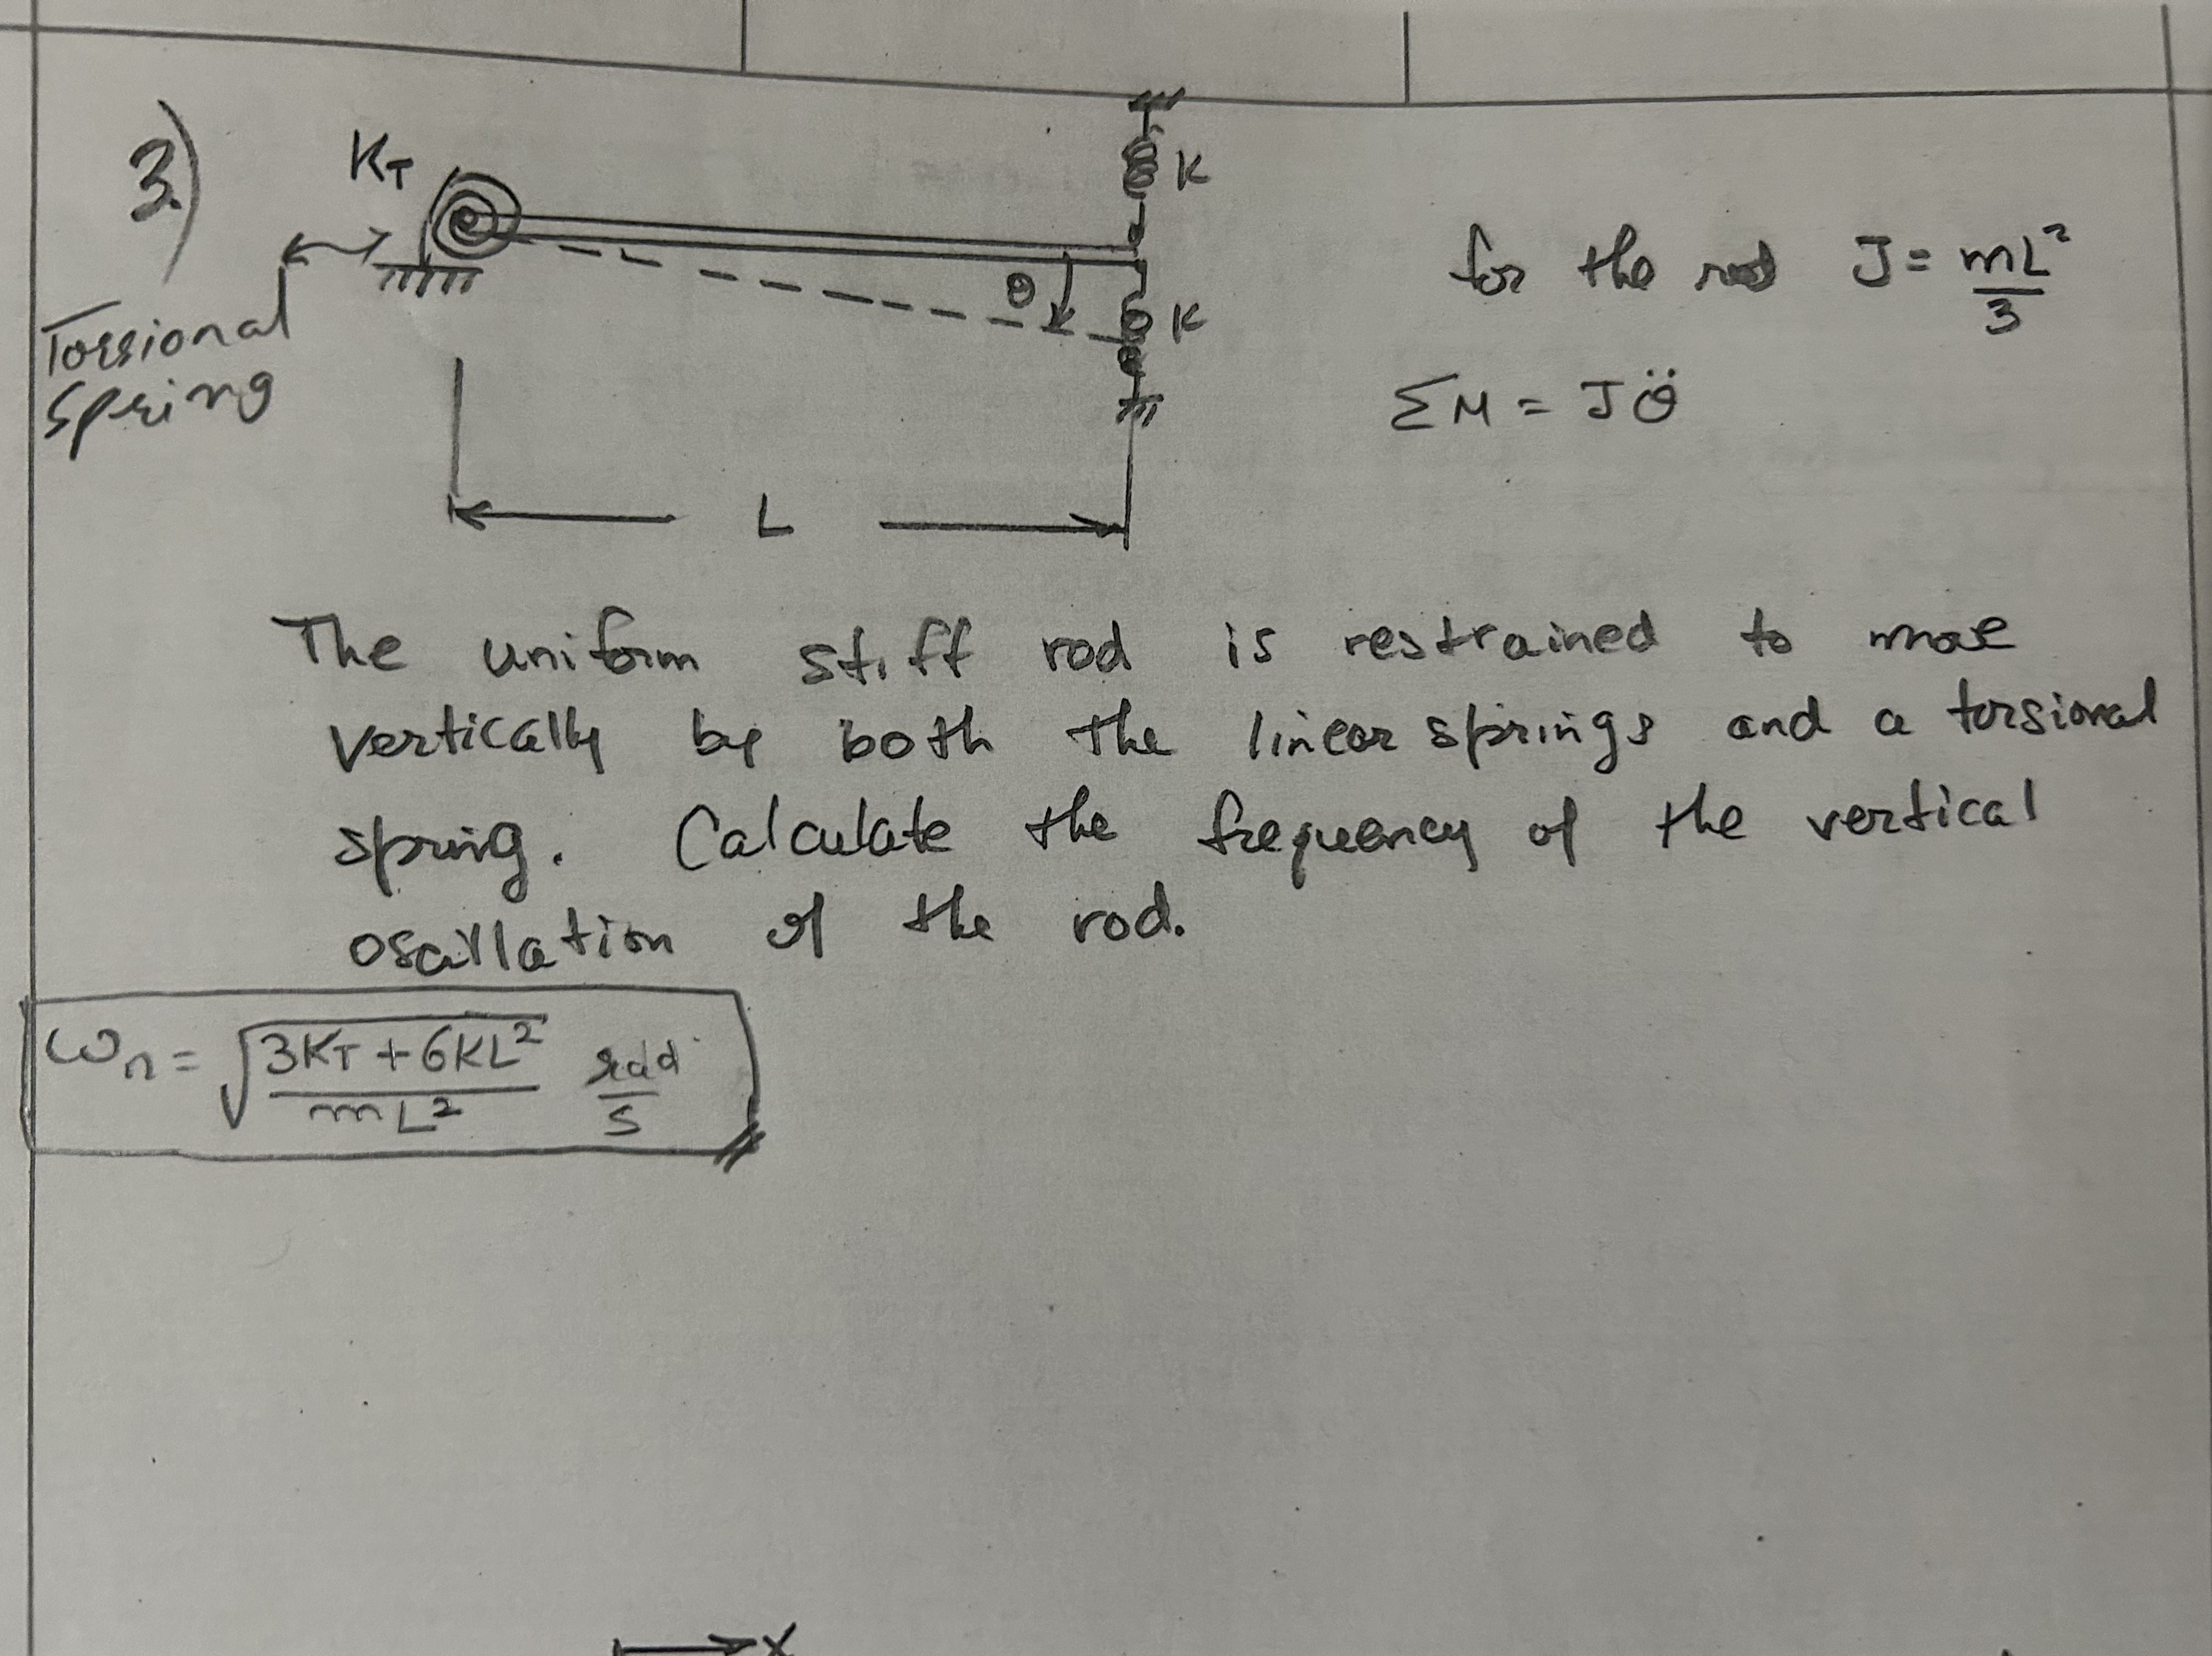 3.)
K_T
K
Torsional
Spring
θ
K
L
for the rod J = mL²/3
ΣM = Jθ̈
The uniform stiff rod is restrained to move
vertically by both the linear springs and a torsional
spring. Calculate the frequency of the vertical
oscillation of the rod.
ω_n = √((3K_T + 6KL²)/(mL²)) rad/s
x